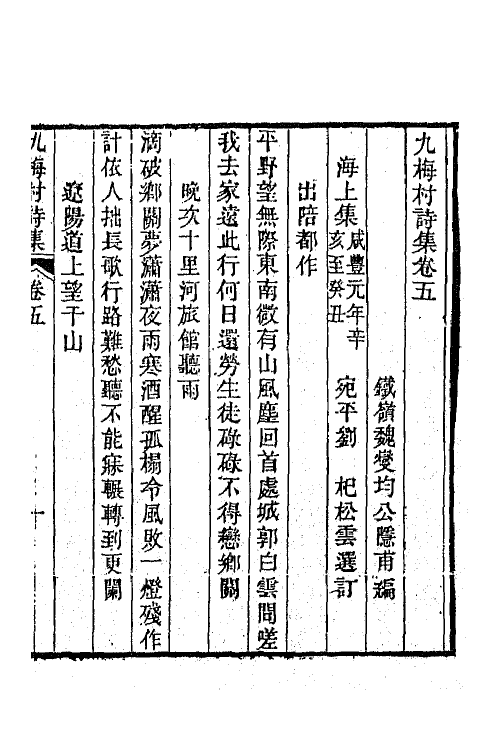 九梅村詩集卷五
鐵嶺魏燮均公隱甫編
海上集咸豐元年辛亥至癸丑 宛平劉 杞松雲選訂
出陪都作
平野望無際東南微有山風塵回首處城郭白雲間嗟
我去家遠此行何日還勞生徒碌碌不得戀鄉關
晚次十里河旅館聽雨
滴破鄉關夢瀟瀟夜雨寒酒醒孤榻冷風敗一燈殘作
計依人拙長歌行路難愁聽不能寐輾轉到更闌
遼陽道上望千山
九梅村詩集 卷五